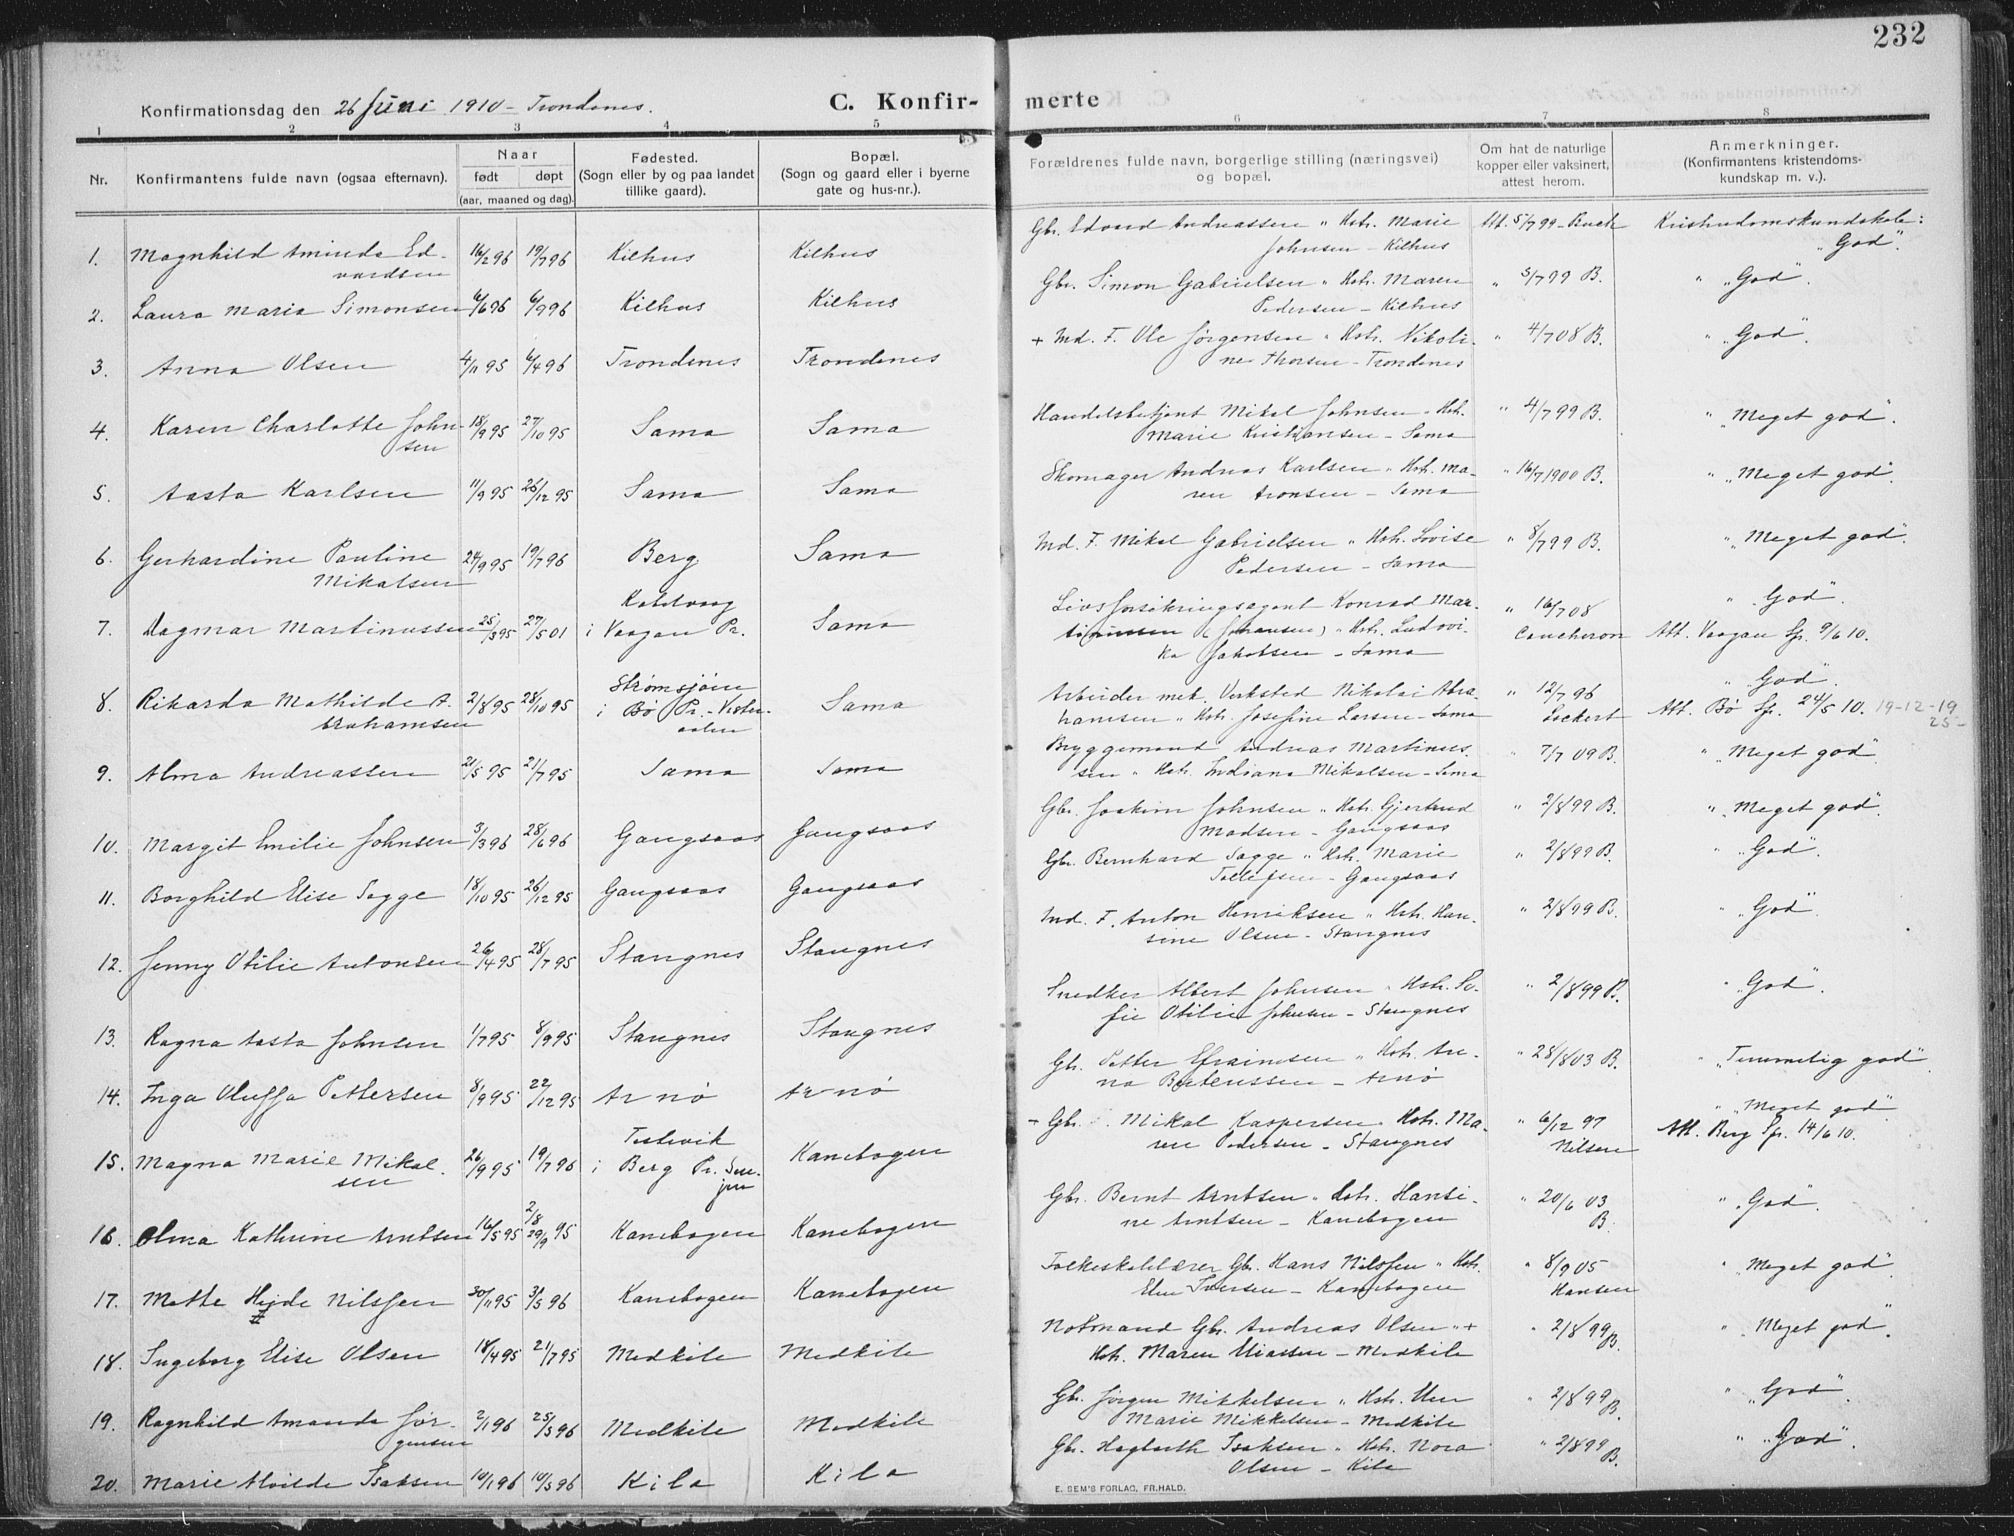 232
Konfirmationsdag den 26 Juni 1910 - Trondenes.
C. Konfir-merte
1 2 3 4 5 6 7 8
Nr.
Konfirmantens fulde navn (ogsaa efternavn).
Naar
født døpt
(aar, maaned og dag).
Fødested.
(Sogn eller by og paa landet
tillike gaard).
Bopæl.
(Sogn og gaard eller i byerne
gate og hus-nr.).
Forældrenes fulde navn, borgerlige stilling (næringsvei)
og bopæl.
Om hat de naturlige
kopper eller vaksinert,
attest herom.
Anmerkninger.
(Konfirmantens kristendoms-
kundskap m. v.).
1. Magnhild Aminda Ed- 16/2 96 19/7 96 Kilhus Kilhus
vardsen
Gbr. Edvard Andreassen " Hstr. Marie Att. 5/7 99 - Buch Kristendomskundskab:
Johnsen - Kilhus "God".
2. Laura Maria Simonsen 6/6 96 6/9 96 Kilhus Kilhus
Gbr. Simon Gabrielsen " Hstr. Maren " 5/7 99 B. " "God".
Pedersen - Kilhus
3. Anna Olsen 4/11 95 6/4 96 Trondenes Trondenes
+ Ind. F. Ole Jørgensen " Hstr. Nikoli- " 4/7 08 B. " "God".
ne Thorsen - Trondenes
4. Karen Charlotte John- 18/9 95 27/10 95 Sama Sama
sen
Handelsbetjent Mikal Johnsen " Hstr. " 4/7 99 B. " "Meget god".
Marie Kristiansen - Sama
5. Aasta Karlsen 11/9 95 26/12 95 Sama Sama
Skomager Andreas Karlsen " Hstr. Ma- " 16/7 1900 B. " "Meget god".
ren Aronsen - Sama
6. Gerhardine Pauline 24/9 95 19/7 96 Berg Sama
Mikalsen
Ind. F. Mikal Gabrielsen " Hstr. Lovise " 8/7 99 B. " "Meget god".
Pedersen - Sama
7. Dagmar Martinussen 25/3 95 27/5 01 Kabelvaag
i Vaagan Pr. Sama
Livsforsikringsagent Konrad Mar- " 16/7 08 " "God".
tinussen (Johansen) " Hstr. Ludovi- Coucheron Att. Vaagan Sp. 9/6 10.
ka Jakobsen - Sama
8. Rikarda Mathilde A- 21/8 95 28/10 95 Strømsjøen
brahamsen i Bø Pr. - Vester- Sama
aalen
Arbeider mek. Verksted Nikolai Abra- " 12/7 96 " "God".
hamsen " Hstr. Josefine Larsen - Sama Lockert Att. Bø Sp. 24/5 10. 19-12-19
25-
9. Alma Andreassen 21/5 95 21/7 95 Sama Sama
Bryggemand Andreas Martinus- " 7/7 09 B. " "Meget god".
sen " Hstr. Indiana Mikalsen - Sama
10. Margit Emilie Johnsen 3/3 96 28/6 96 Gangsaas Gangsaas
Gbr. Joakim Johnsen " Hstr. Gjertrud " 2/8 99 B. " "Meget god".
Madsen - Gangsaas
11. Borghild Elise Sagge 18/10 95 26/12 95 Gangsaas Gangsaas
Gbr. Bernhard Sagge " Hstr. Marie " 2/8 99 B. " "God".
Tollefsen - Gangsaas
12. Jenny Otilie Antonsen 26/4 95 28/7 95 Stangnes Stangnes
Ind. F. Anton Henriksen " Hstr. Han- " 2/8 99 B. " "God".
sine Olsen - Stangnes
13. Ragna Aasta Johnsen 1/7 95 8/9 95 Stangnes Stangnes
Snedker Albert Johnsen " Hstr. So- " 2/8 99 B. " "God".
fie Otilie Johnsen - Stangnes
14. Inga Oluffa Pettersen 8/9 95 22/12 95 Arnø Arnø
Gbr. Petter Efraimsen " Hstr. An- " 28/8 03 B. " "Temmelig god".
na Berteussen - Arnø
15. Magna Marie Mikal- 26/9 95 19/7 96 Teslevik
sen i Berg Pr. Sen- Kanebogen
jen
+ Gbr. Mikal Kaspersen " Hstr. Ma- " 6/12 97 " "Meget god"
ren Pedersen - Stangnes Nilsen Att. Berg Sp. 14/6 10.
16. Olma Kathrine Arntsen 16/5 95 2/8 29/9 95 Kanebogen Kanebogen
Gbr. Bernt Arntsen " Hstr. Hansi- " 20/6 03 " "God".
ne Arntsen - Kanebogen B.
17. Mette Hejde Nilssen 30/11 95 31/5 96 Kanebogen Kanebogen
Folkeskolelærer Gbr. Hans Nilssen " Hstr. " 8/9 05 " "Meget god".
Elen Iversen - Kanebogen Hansen
18. Ingeborg Elise Olsen 18/4 95 21/7 95 Medkile Medkile
Notmand Gbr. Andreas Olsen " + " 2/8 99 B. " "Meget god".
Hstr. Maren Eliassen - Medkile
19. Ragnhild Amanda Jør- 2/1 96 25/5 96 Medkile Medkile
gensen
Gbr. Jørgen Mikkelsen " Hstr. Elen " 2/8 99 B. " "God".
Marie Mikkelsen - Medkile
20. Marie Alvilde Isaksen 10/1 96 10/5 96 Kila Kila
Gbr. Hagbarth Isaksen " Hstr. Nora " 2/8 99 B. " "God".
Olsen - Kila
E. SEM'S FORLAG, FR.HALD.